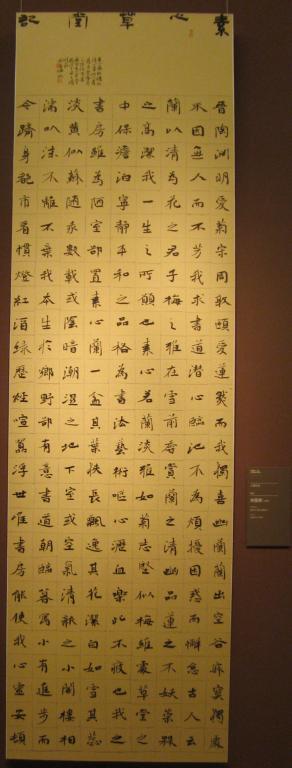 素心草堂記
晉陶淵明愛菊宋周敦頤愛蓮然而我獨喜幽蘭蘭出空谷寂寞獨處
不因無人而不芳我求書道潛心臨池不為煩擾困惑而懈怠古人云
蘭以清為花之君子梅之雅在雪前香賞蘭之清幽品蓮之不妖
之高潔我一生之所願也素心若蘭淡雅如菊志堅似梅雖處草堂之
中保澹泊寧靜平和之品格為書法藝術嘔心瀝血樂此不疲也我之
書房雖為陋室卻置素心蘭一盆其葉長飄逸其花潔白如雪其蕊
淡黃似蘇隨數載或陰暗潮濕之地下室或空氣清之小閣樓相
濡以沫不離不棄我本生於鄉野卻有意書道朝臨暮寫小有進步而
今躋身市看慣燈紅酒綠歷經喧囂浮世唯書房能使我心靈安頓